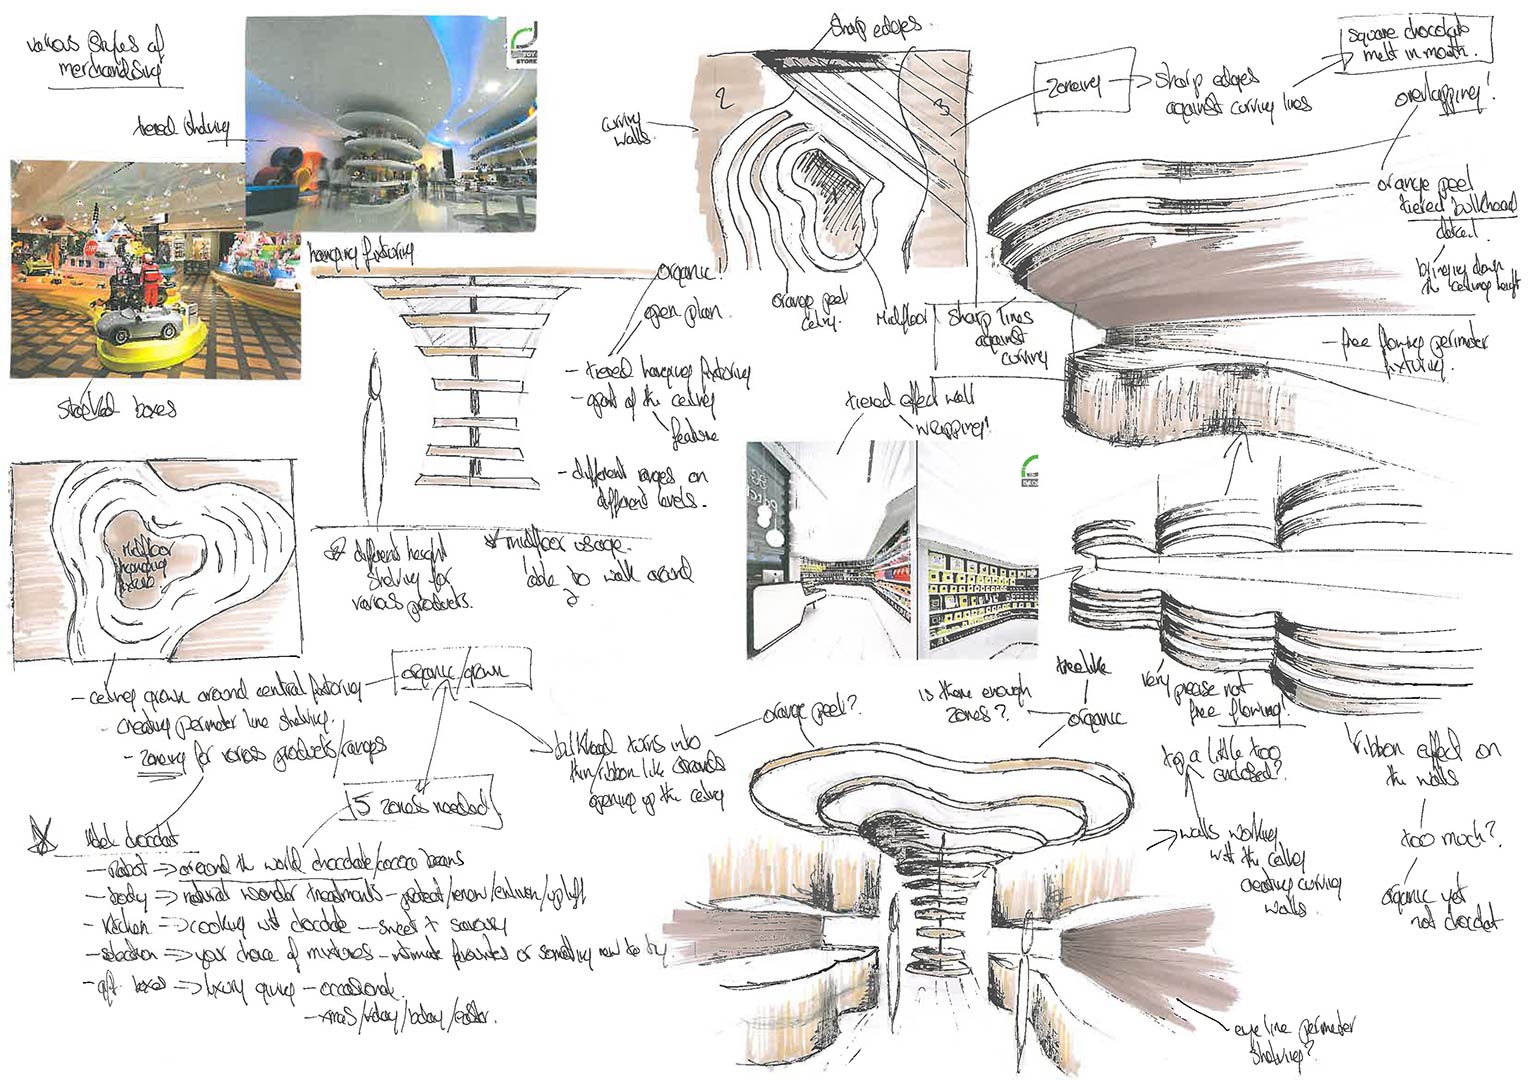 various styles of
merchandising
tiered shelving
STORE
hanging fixturing
stacked boxes
organic!
open plan.
- tiered hanging fixturing
- apart of the ceiling
feature
- different ranges on
different levels.
different height
shelving for
various products.
* midfloor usage.
able to walk around
?
Midfloor
hanging
fixture
- ceiling grown around central fixturing
- creating perimeter line shelving.
- zoning for various products/ranges
organic/grown
5 zones needed
bulkhead turns into
thin/ribbon like strands
opening up the ceiling
orange peel?
chocolat
- → around the world chocolate/cocoa beans
- body → natural wonder treatments - protect/renew/enliven/uplift
- kitchen → cooking with chocolate - sweet + savoury
- selection → your choice of mixtures - intimate favourites or something new to try.
- gift boxes → luxury giving - occasional.
- xmas/vday/bday/easter.
sharp edges.
curving
walls.
2
3
orange peel
ceiling.
Midfloor
sharp lines
against
curving
zoning
→ sharp edges
against curving lines
square chocolate
melt in mouth.
overlapping!
orange peel
tiered bulkhead
detail.
bringing down
the ceiling height
- free flowing perimeter
fixturing.
tiered effect wall
wrapping!
is there enough
zones?
treelike
organic
very precise not
free flowing!
too a little too
enclosed?
ribbon effect on
the walls
too much?
organic yet
not chocolat
→ walls working
with the ceiling
creating curving
walls.
eye line perimeter
shelving?